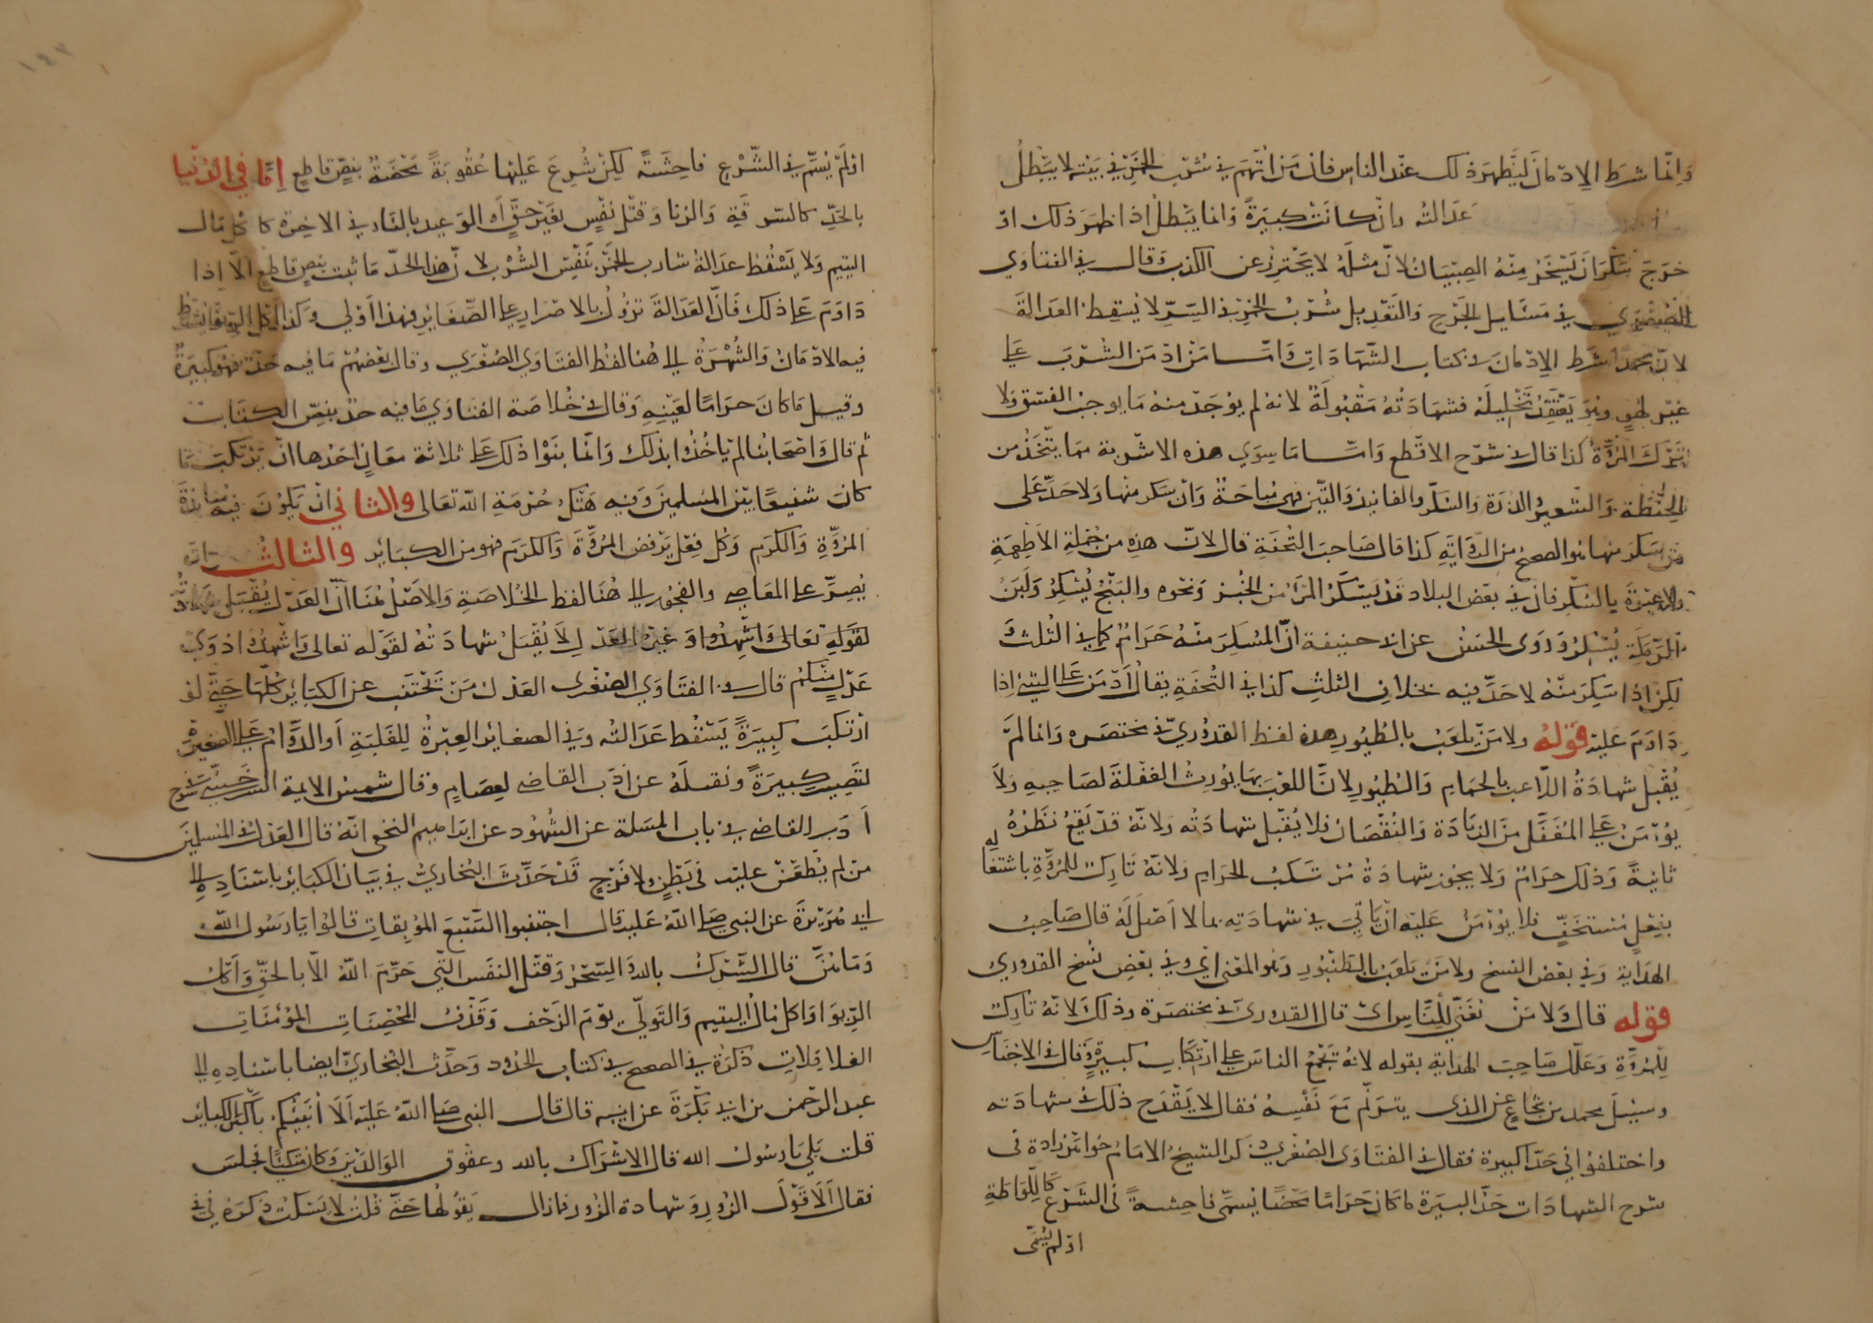 وَاِنّما شرط الاِدمَانَ لَيَظهرَ ذلك عند الناس فان مَن اتُّهِمَ في شُرب الخمر في بَيته لا يَبطلُ
عَدَالتُه وانْ كانَتْ كبيرَةً وَانما يَبطلُ اذا ظهَرَ ذلك اذ
خرَجَ سَكرَانَ يَسْخرُ مِنْهُ الصِبيَانُ لانّ مثلَه لا يحترِزُ عن الكذب وَقال في الفتاوَي
الصغري في مَسَايل الجَرح وَالتعْدِيل شُربُ الخمرِ في السّرِّ لا يُسقِط العدالةَ
لانّ محمدًا شرَط الاِدْمَانَ في كتاب الشّهَادَاتِ وَامّا مَنْ ادْمَنَ الشربَ على
غير لهْوٍ وهُوَ يَعْتقِدُ تَحْلِيلَهُ فشهَادَتُه مَقبُولَةٌ لانه لم يُوجَد منهُ مَا يوجبُ الفسقَ وَلا
تَرْكَ المُرُوَّةِ كذا قال في شرْح الاقطع وَامّا مَا سِوَي هذه الاشربة مما يتّخَذُ من
الحِنْطَة وَالشعيرِ والذرَة وَالسُكّر والفانيذ وَالتّين فهي مُبَاحَةٌ وَانْ سَكر منها وَلا حَدّ عَلى
مَن سَكرَ منها هو الصحيحُ من الرّوَايَةِ كذا قال صَاحبُ التُحفَةِ قال لانّ هذِهِ من جُملةِ الاَطعِمَةِ
ولا عِبْرَةَ بالسُكْر فان في بَعْض البلاد قدْ يَسْكَرُ المَرْءُ من الخُبز وَنحوه والبَنْجُ يُسْكِرُ وَلَبَنُ
الرّمَكَةِ يُسْكِرُ وَرَوَى الحسَنُ عن ابي حنيفة انّ المُسْكِرَ منْهُ حَرَامٌ كما في المُثلثِ
لكِنْ اذا سَكِرَ منهُ لا حَدّ فيه بخلاف المثلث كذا في التُحْفَةِ يقالُ اَدْمَنَ عَلى الشئ اذا
دَاوَمَ عَليه قَوْلهُ ولا مَن يَلعَبُ بالطُيُورِ هذه لفظ القدُوريّ في مختصَره وَانما لم
يُقْبَلْ شهادَةُ اللّاعب بالحمَامِ وَالطُيُورِ لانّ اللعبَ بهَا يُورِثُ الغفْلةَ لصَاحبهِ وَلا
يُؤْمَنُ على المُغفّل من الزيَادَة وَالنقصَان فلا يُقْبَلُ شهَادَتُه وَلانّهُ قدْ يَقعُ نَظرُهُ
ثانيةً وَذلك حرَامٌ وَلا يجوز شهَادَةُ مُرْتَكب الحرَامِ وَلانّهُ تارِكٌ للمُرُوَّةِ باشتغاله
بفِعلٍ مُسْتخَفٍّ فلا يُؤْمَنُ عَليه انْ يَاتِيَ في شهادَتِه بما لا اصْلَ لهُ قال صَاحِبُ
الهدَاية وَفي بعْض النسخ ولا مَنْ يلعَبُ بالطُنْبُورِ وَهُو المغني اي وفي بعْض نُسَخ القدوري
قوله قال وَلا مَنْ تغَنّي للنّاسِ اي قال القدوريّ في مختصَره وَذلك لانّهُ تارِكٌ
للمُرُوَّةِ وَعَلّل صَاحبُ الهدَاية بقوله لانّهُ يَجْمَعُ الناسَ على ارْتكابِ كبيرةٍ وَقال في الاجناس
وسُئِلَ محمد بن شجاعٍ عن الذي يترَنّم مَعَ نَفْسِهِ فقال لا يَقْدَحُ ذلك في شهادَته
واختلفوُا في حَدّ الكبيرة فقال في الفتاوي الصُغرى ذكر الشيخُ الامَامُ خوَاهَرْ زادة في
شرح الشهادَات حَدّ الكبيرَة ما كانَ حَرَامًا مَحْضًا يُسَمّي فاحِشةً في الشرع كاللوَاطةِ
اوْ لم يُسَمّى
اوْ لَمْ يُسَمّ في الشّرْعِ فاحِشَةً لكِنْ شُرِعَ عَليْها عُقوُبَةٌ مَحْضَةٌ بنصٍّ قاطعٍ اِمّا في الدُنْيا
بالحَدِّ كالسَرقةِ وَالزِنا وَقتْل نَفْسٍ بغَيْر حقٍّ اَو الوَعيد بالنّار في الاخِرَة كاَكْل مَال
اليتيم وَلا يَسْقُط عَدَالة شارب الخمْر بنَفْس الشُرْب لانّ هذا الحدّ مَا ثبت بنصٍ قاطعٍ الّا اذا
دَاوَمَ عَلى ذلك فَانّ العدَالةَ تزُوُلُ بالاصْرَار على الصّغَائر فهذا اَوْلى وكذا اَكل الرّبوا يُشْترَط
فيه الادْمَانُ وَالشُهْرَةُ الى هُنا لفظُ الفتاوَي الصُغرَي وقال بَعْضهُمْ مَا فيه حَدٌّ فهُو كبيرَةٌ
وقيل مَا كانَ حرَامًا لعَيْنِهِ وَقال في خُلاصَة الفتَاوَي مَا فيه حدٌّ بنصّ الكتَاب
ثم قال وَاصْحَابُنا لم يَاخُذُوا بذلك وَانّما بنَوْا ذلك عَلى ثلاثة مَعانٍ احدُها انْ يَرْتكبَ ما
كانَ شنيعًا بيْن المُسلمينَ وَفيه هَتْكُ حُرْمَةِ اللّه تعَالى والثاني انْ يَكُونَ فيه مُنابذةُ
المُرُوَّةِ وَالكَرَمِ وَكُل فِعْل يَرْفضُ المُرُوَّةَ وَالكَرَمَ فهو من الكبَائر وَالثالثُ انّه
يُصِرّ على المَعَاصي والفجُور الى هُنَا لفظ الخُلاصَةِ وَالاصْلُ هُنَا اَنّ العَدْلَ يُقْبَلُ شهَادَتُهُ
لقَوْلِهِ تعَالى وَاشْهِدُوا وَ غيْرَ العَدْلِ لا يُقْبَلُ شهادَتُهُ لقوْله تعالى وَاشْهِدُوا ذَوَيْ
عَدْلٍ مِنكُم قال في الفتَاوَي الصُغرى العَدْلُ مَنْ يَجْتَنِبُ عن الكبَائر كُلّهَا حَتّى لوْ
ارْتكَبَ كبِيرَةً يَسْقُط عَدَالتُه وَفي الصغائر العِبْرَةُ للغَلَبَةِ اَوالدّوَام عَلى الصغيرَة
لتَصِيرَ كبيرَةً وَنقلَهُ عن اَدَب القاضي لعِصَامٍ وَقال شمسُ الايمة السّرخسِيّ في شرح
اَدَبِ القاضي في باب المَسْئلة عن الشهُود عن ابرَاهيم النخعي انّهُ قال العَدْلُ في المُسلِمينَ
مَن لم يُطْعَنْ عليْه في بَطْنٍ ولا فَرْجٍ وَقَدْ حَدّثَ البُخاريُّ في بيَان الكبائر باسْنَادِهِ الى
ابي هُرَيْرَةَ عن النبي صلى اللّهُ عَليْه قال اجتنِبوا السّبْعَ المُوبِقاتِ قالُوا يَا رَسُول اللّه
وَمَا هُنّ قال الشّرْكُ باللّه وَالسِّحْرُ وَقتْلُ النفْس الّتي حَرّمَ اللّهُ الّا بالحقِّ وَاَكْلُ
الرّبوَا وَاكْل مَالِ اليتيم وَالتوَلّي يَوْمَ الزَحْف وَقَذْفُ المُحْصِنَاتِ المُؤْمنَاتِ
الغَافِلاتِ ذكرَهُ في الصحيح في كتاب الحُدُود وَحَدّث البُخاريّ ايضا باسْنادِهِ الى
عبد الرّحْمن بن ابي بَكْرَةَ عن ابيهِ قال قال النبي صلى اللّهُ عَليه اَلا اُنَبّئُكُمْ باَكْبَر الكبائر
قلت بَلي يَا رسُول اللّه قال الاشْرَاك باللّه وعقُوق الوَالدَيْن وَكان مُتّكئًا فجَلسَ
فقال اَلا وقوْلَ الزُورِ وَشهَادة الزُور فمازال يَقُوْلهَا حَتّى قُلْتُ لا يَسْكُتُ ذكرَهُ في